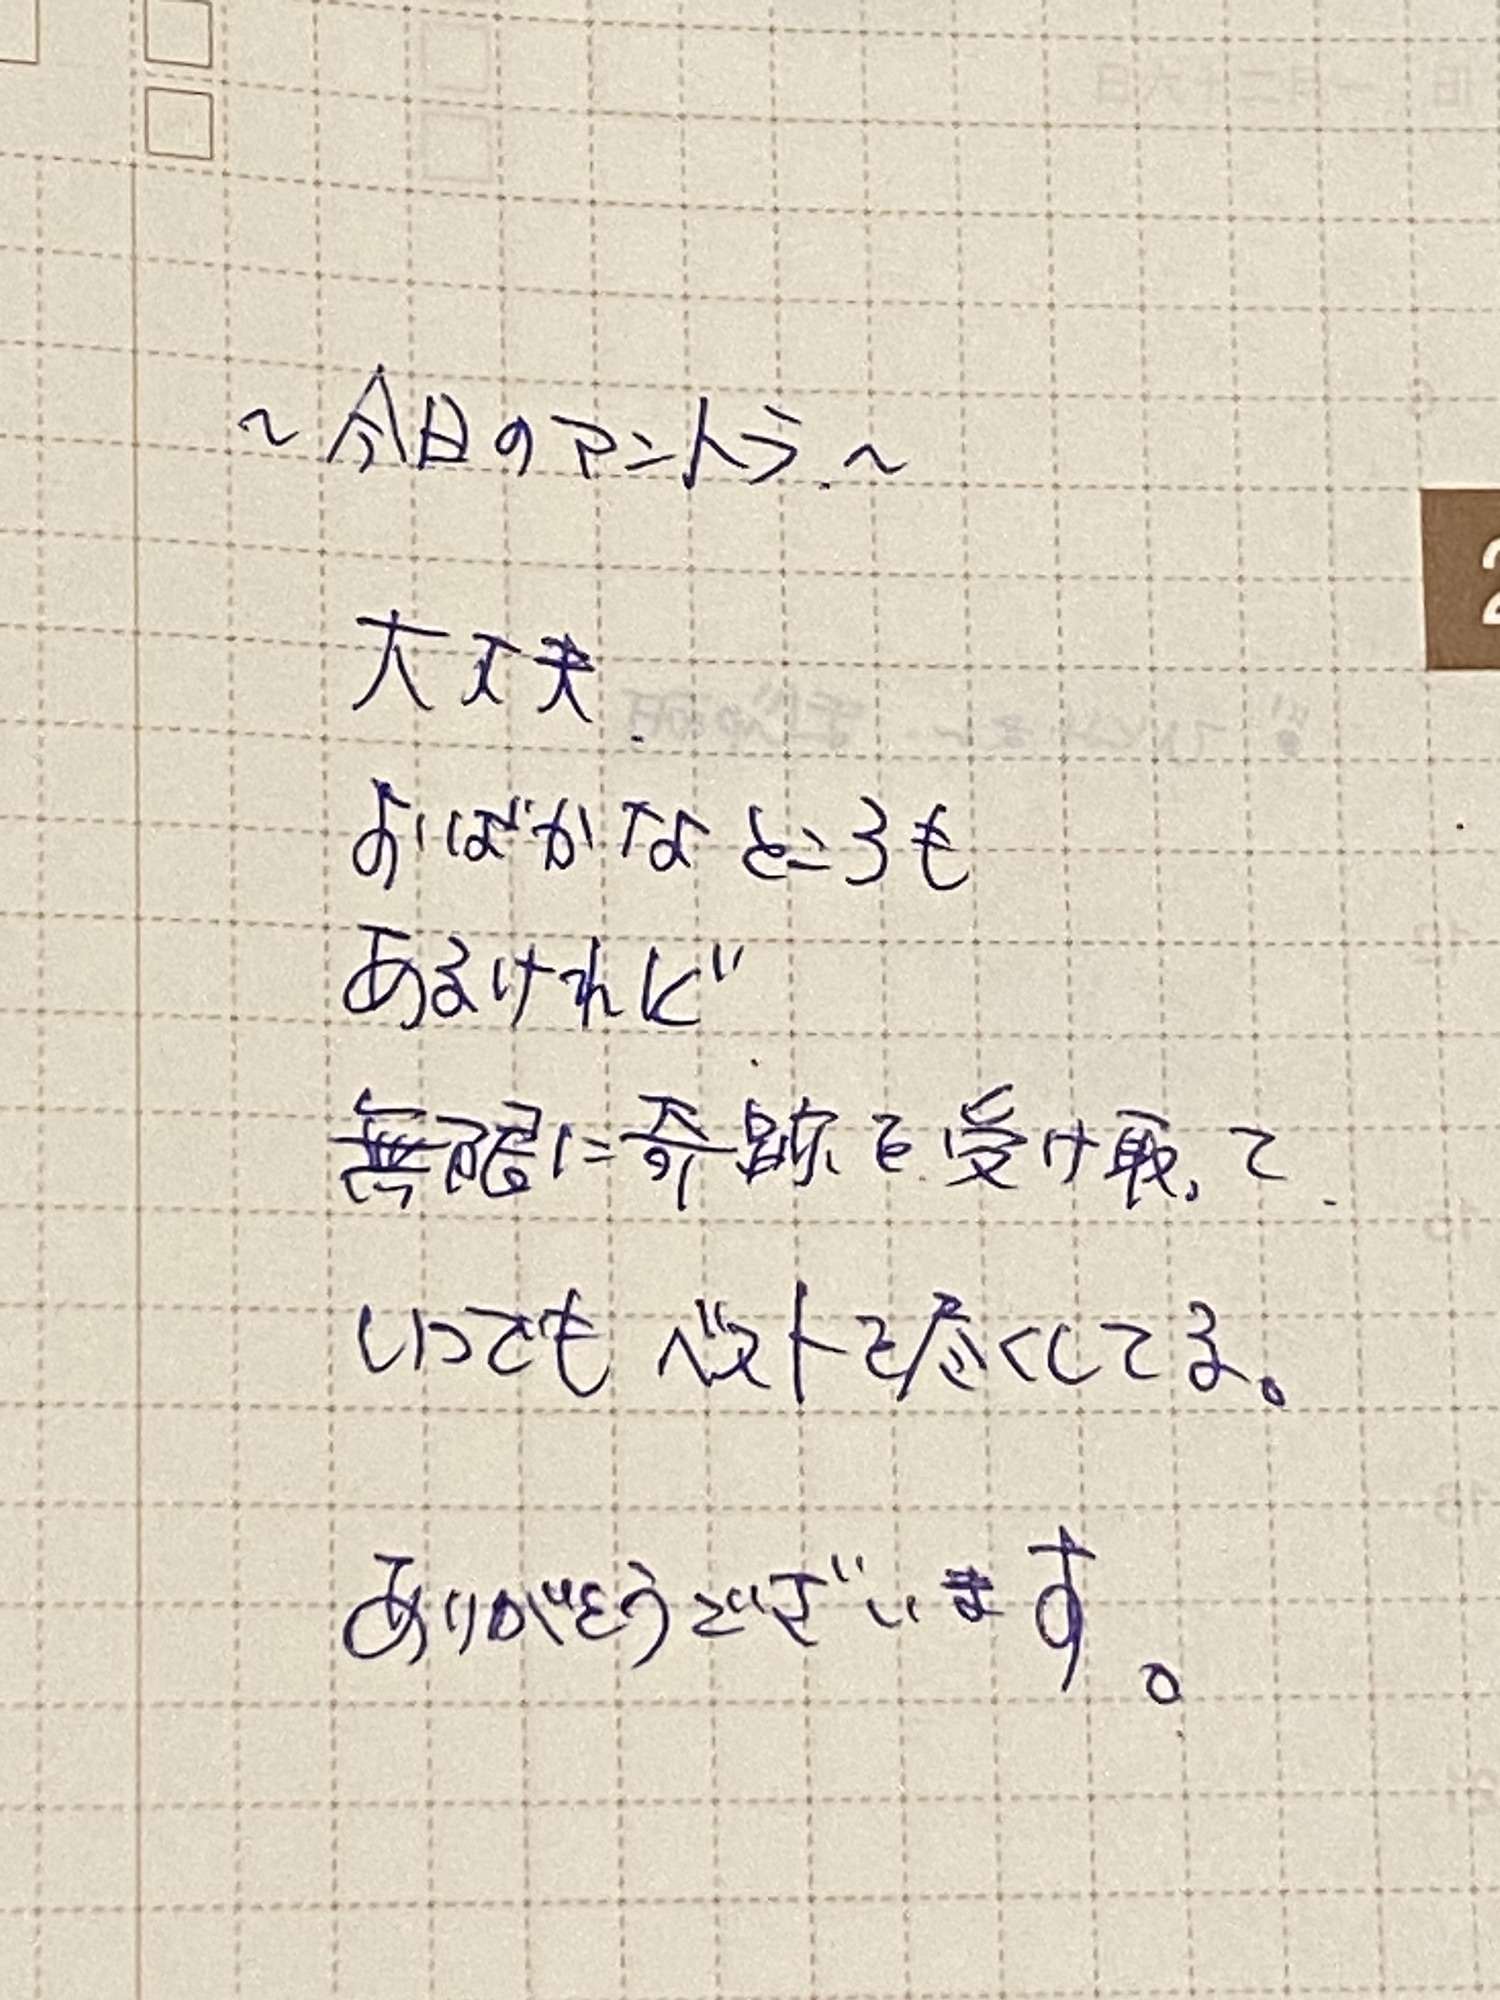 〜今日のマントラ〜
大丈夫
おばかなところも
あるけれど
無限に奇跡を受け取って
いつでもベストを尽くしてる。
ありがとうございます。
2